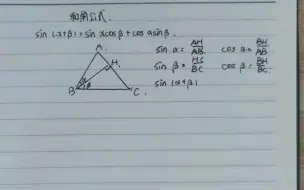 和角公式.
sin (α+β) = sin α cos β + cos α sin β.
A
H
B
C
α
β
sin α = AH/AB. cos α = BH/AB.
sin β = HC/BC cos β = BH/BC.
sin (α+β)